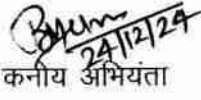 24/12/24
कनीय अभियंता